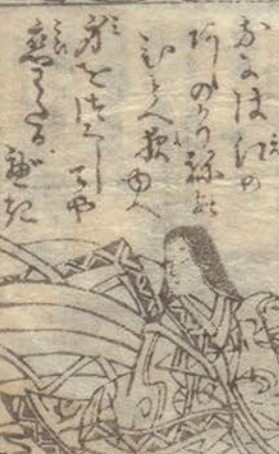 なには江の
あしのかりねの
ひと夜ゆへ
身をつくしてや
恋わたるべき